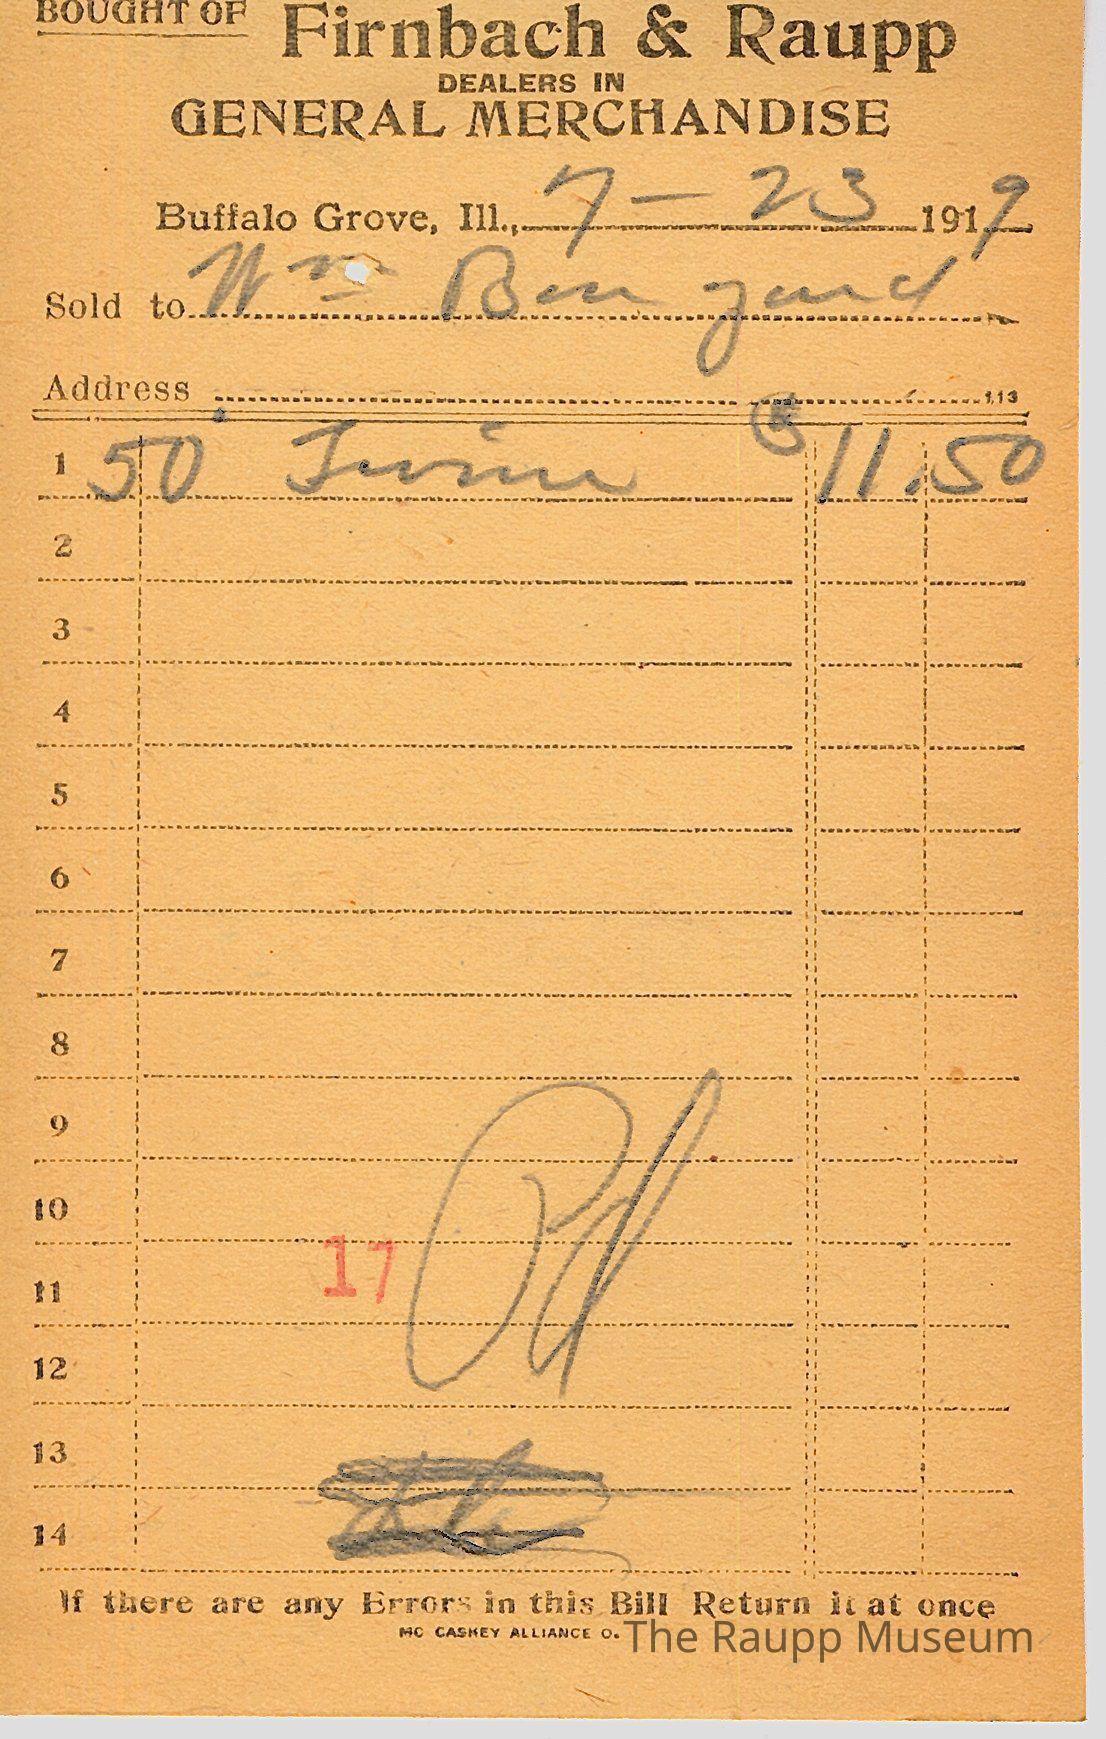 BOUGHT OF
Firnbach & Raupp
DEALERS IN
GENERAL MERCHANDISE
Buffalo Grove, Ill., 7 - 23 1919
Sold to Wm
Address
113
1 50 Twine $ 11.50
2
3
4
5
6
7
8
9
10
17
11
12
13
14
If there are any Errors in this Bill Return it at once
MC CASKEY ALLIANCE O.
The Raupp Museum